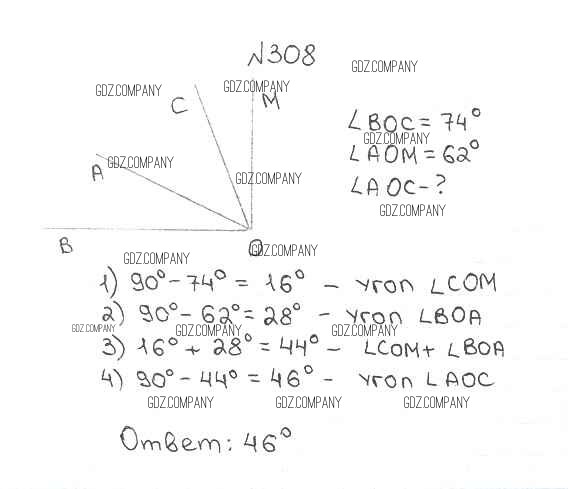 N308
GDZ.COMPANY
GDZ.COMPANY GDZ.COMPANY
C M
∠BOC = 74°
GDZ.COMPANY
∠AOM = 62°
A GDZ.COMPANY
GDZ.COMPANY
∠AOC - ?
GDZ.COMPANY
B O GDZ.COMPANY
GDZ.COMPANY
1) 90° - 74° = 16° - угол ∠COM
2) 90° - 62° = 28° - угол ∠BOA
GDZ.COMPANY GDZ.COMPANY GDZ.COMPANY
3) 16° + 28° = 44° - ∠COM + ∠BOA
4) 90° - 44° = 46° - угол ∠AOC
GDZ.COMPANY GDZ.COMPANY GDZ.COMPANY
Ответ: 46°